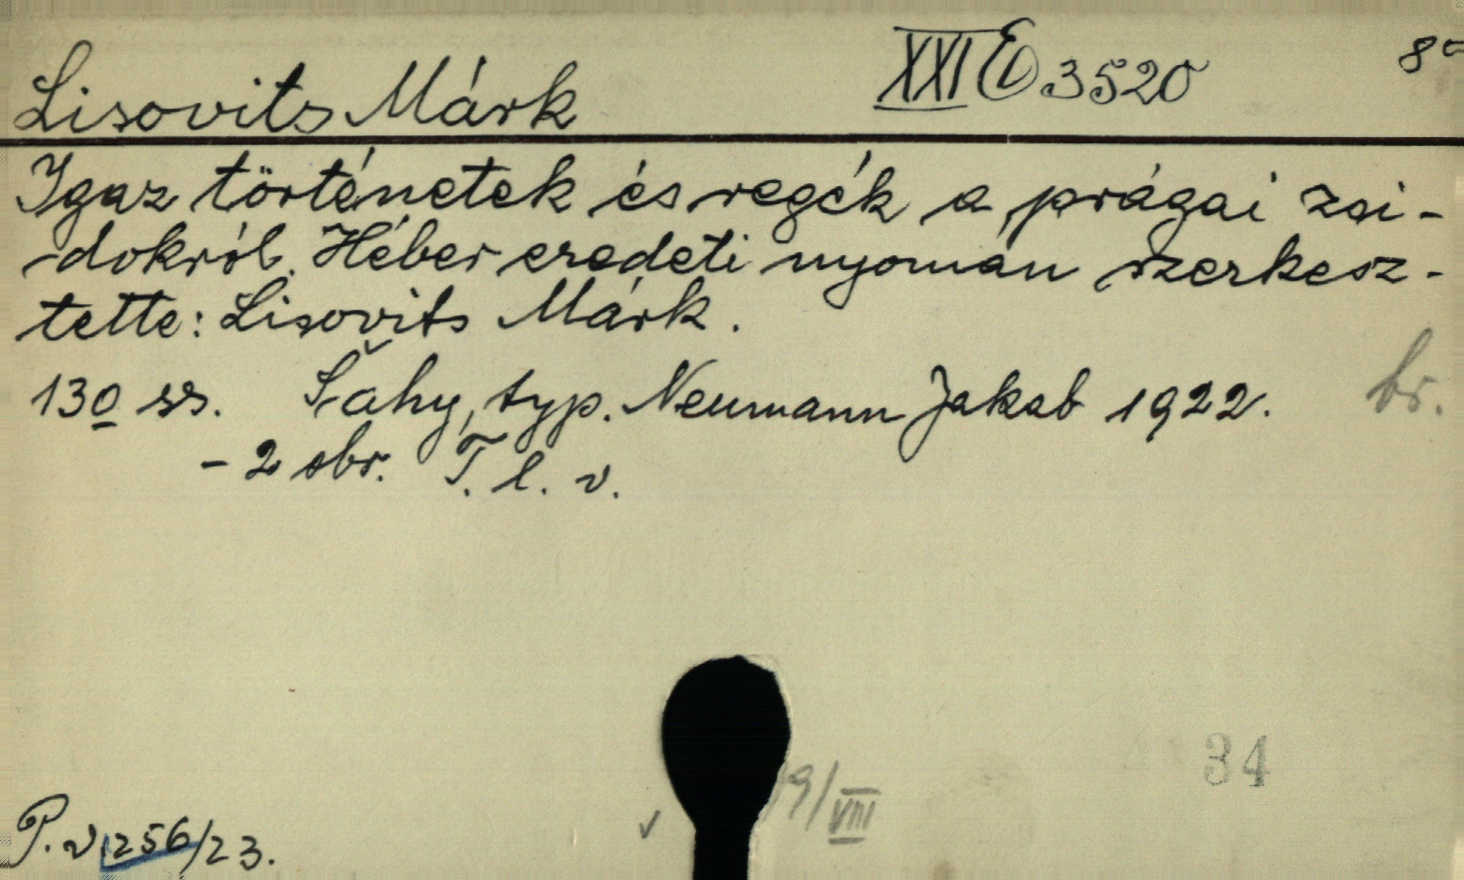 Lisovits Márk XXI E 3520 8°
Igaz történetek és regék a prágai zsi-
dokról. Héber eredeti nyomán szerkesz-
tette: Lisovits Márk.
130 ss. Šahy, typ. Neumann Jakab 1922. br.
- 2 obr. T. l. v.
34
19/VIII
P. v. 1256/23.